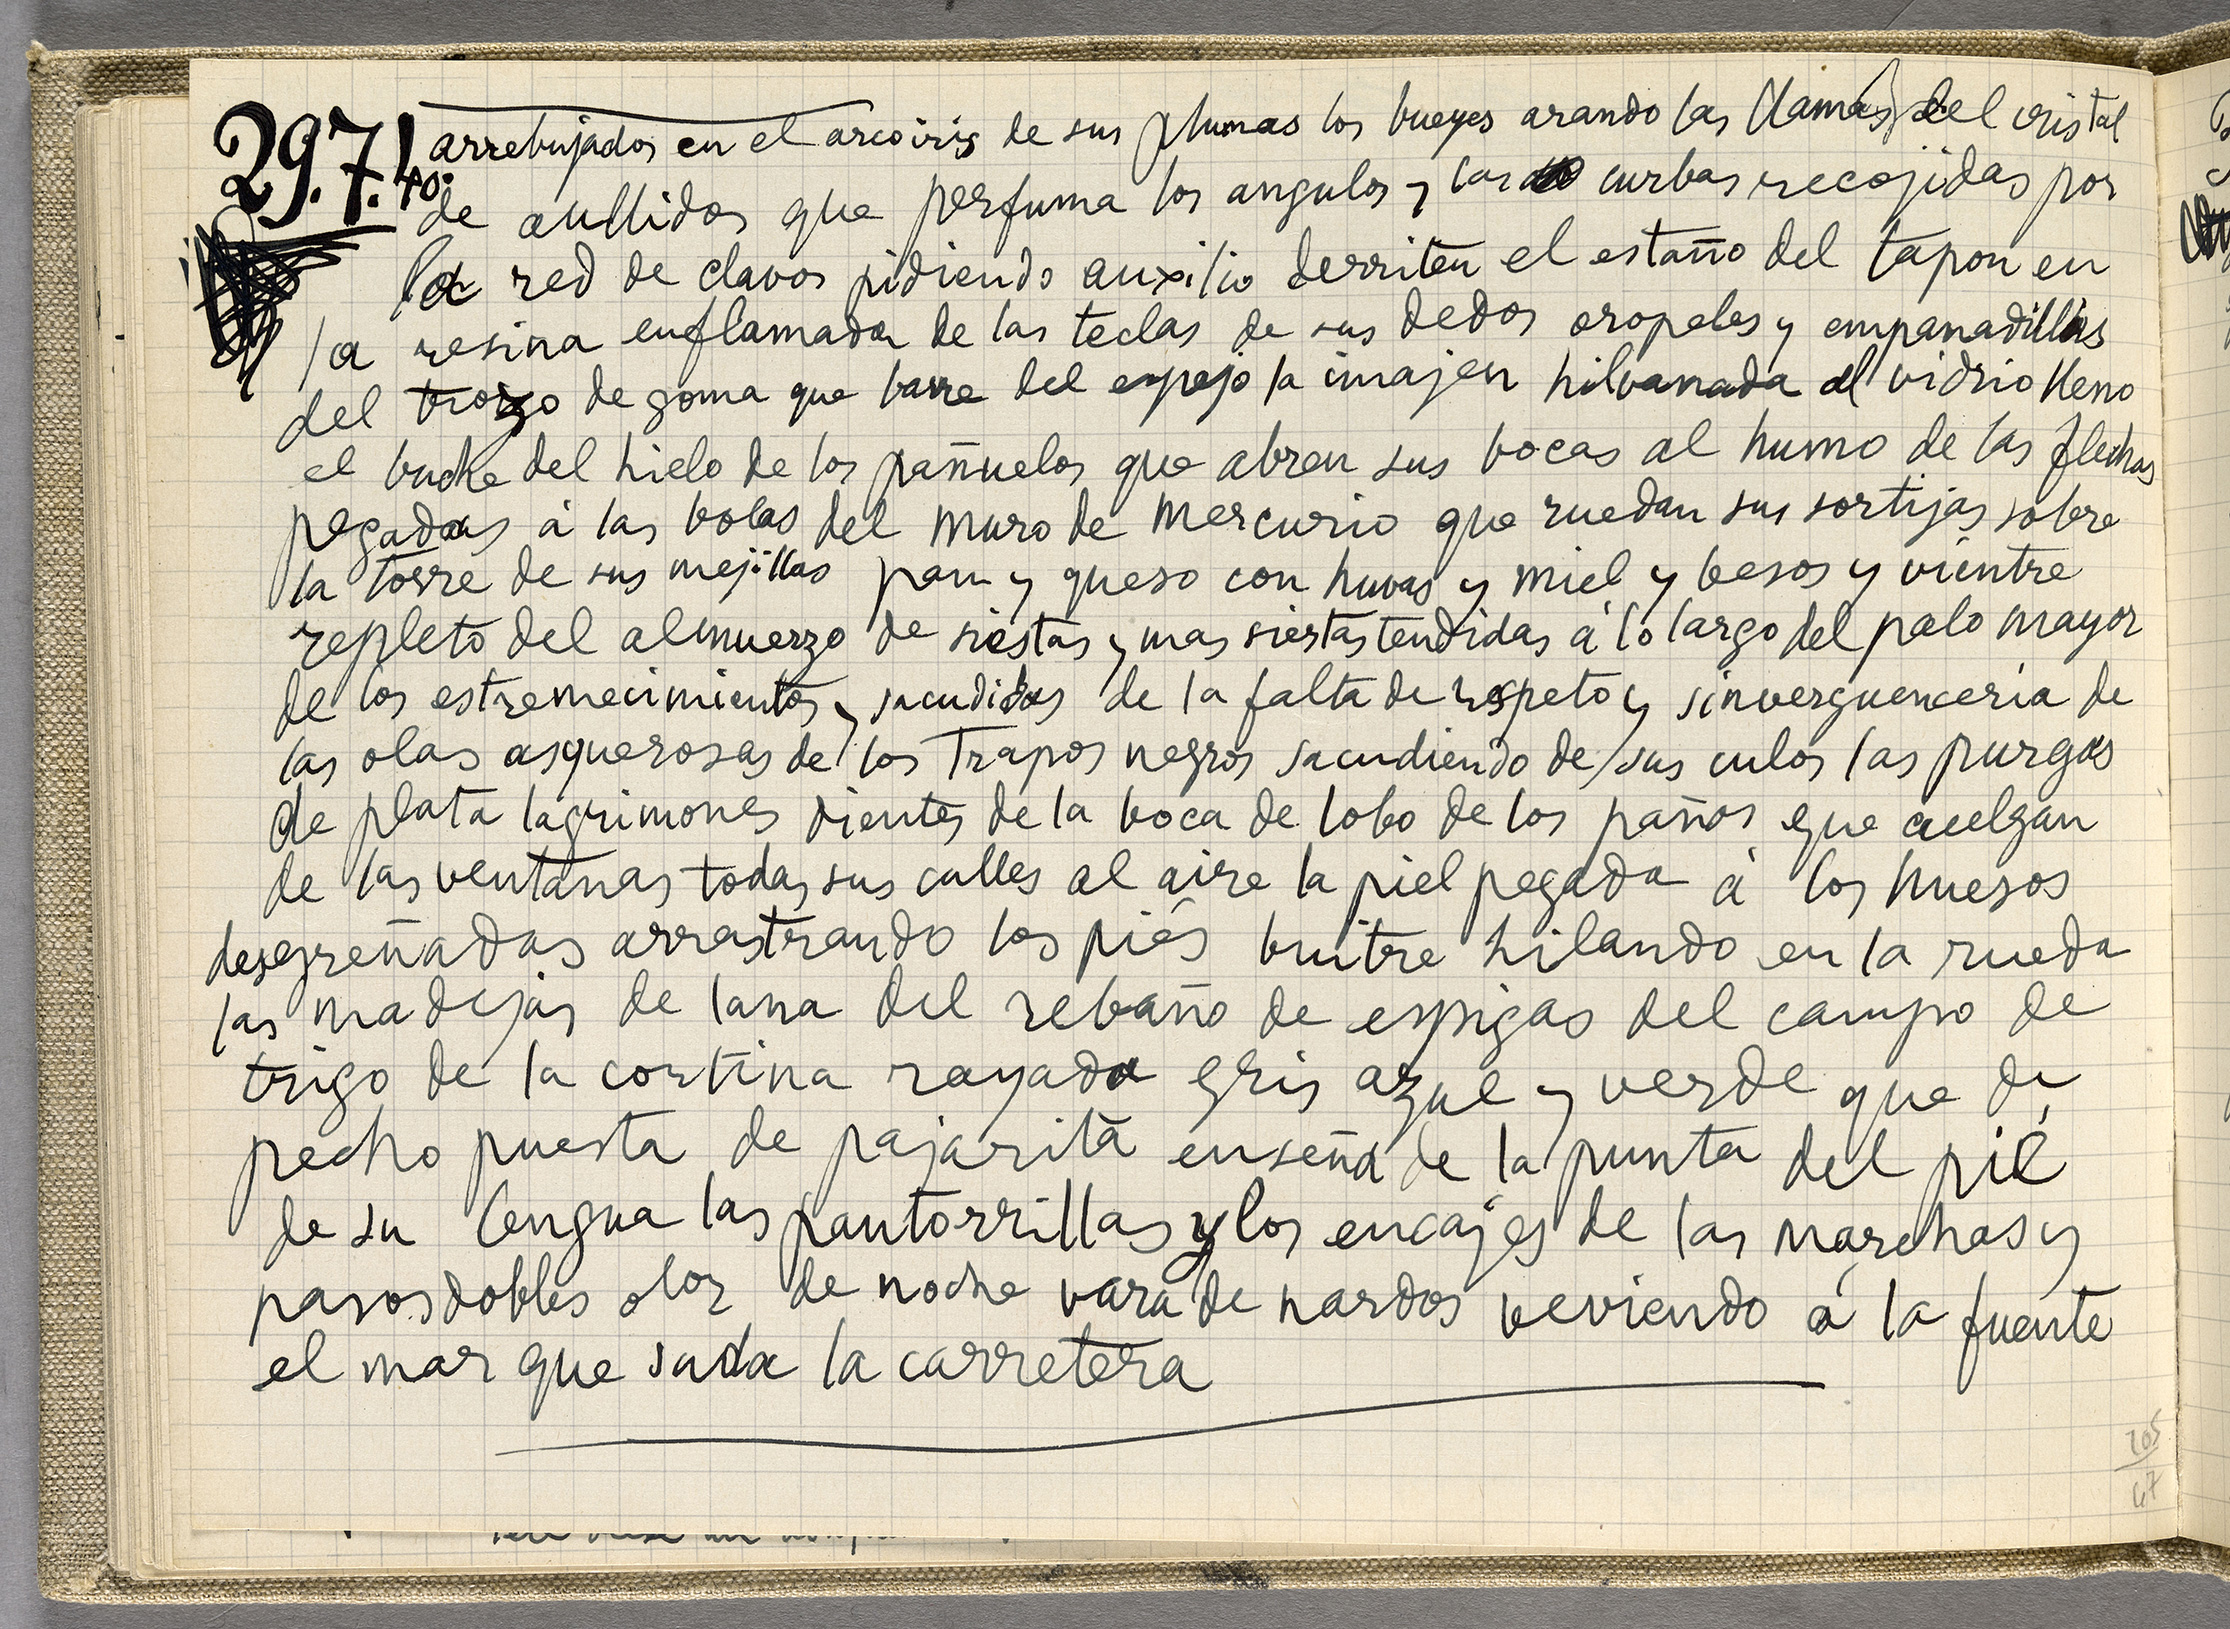 29.7.40.
arrebujados en el arcoiris de sus plumas los bueyes arando las llamas del cristal
de aullidos que perfuma los angulos y las curbas recojidas por
la red de clavos pidiendo auxilio derriten el estaño del tapon en
la resina enflamada de las teclas de sus dedos oropeles y empanadillas
del trozo de goma que barre del espejo la imajen hilvanada al vidrio lleno
el buche del hielo de los pañuelos que abren sus bocas al humo de las flechas
pegadas á las bolas del muro de mercurio que ruedan sus sortijas sobre
la torre de sus mejillas pan y queso con huvas y miel y besos y vientre
repleto del almuerzo de siestas y mas siestas tendidas á lo largo del palo mayor
de los estremecimientos y sacudidas de la falta de respeto y sinverguenceria de
las olas asquerosas de los trapos negros sacudiendo de sus culos las purgas
de plata lagrimones dientes de la boca de lobo de los paños que cuelgan
de las ventanas todas sus calles al aire la piel pegada á los huesos
desgreñadas arrastrando los piés buitre hilando en la rueda
las madejas de lana del rebaño de espigas del campo de
trigo de la cortina rayada gris azul y verde que de
pecho puesta de pajarita enseña de la punta del pié
de su lengua las pantorrillas y los encajes de las marchas y
pasosdobles olor de noche vara de nardos veviendo á la fuente
el mar que suda la carretera
205
47